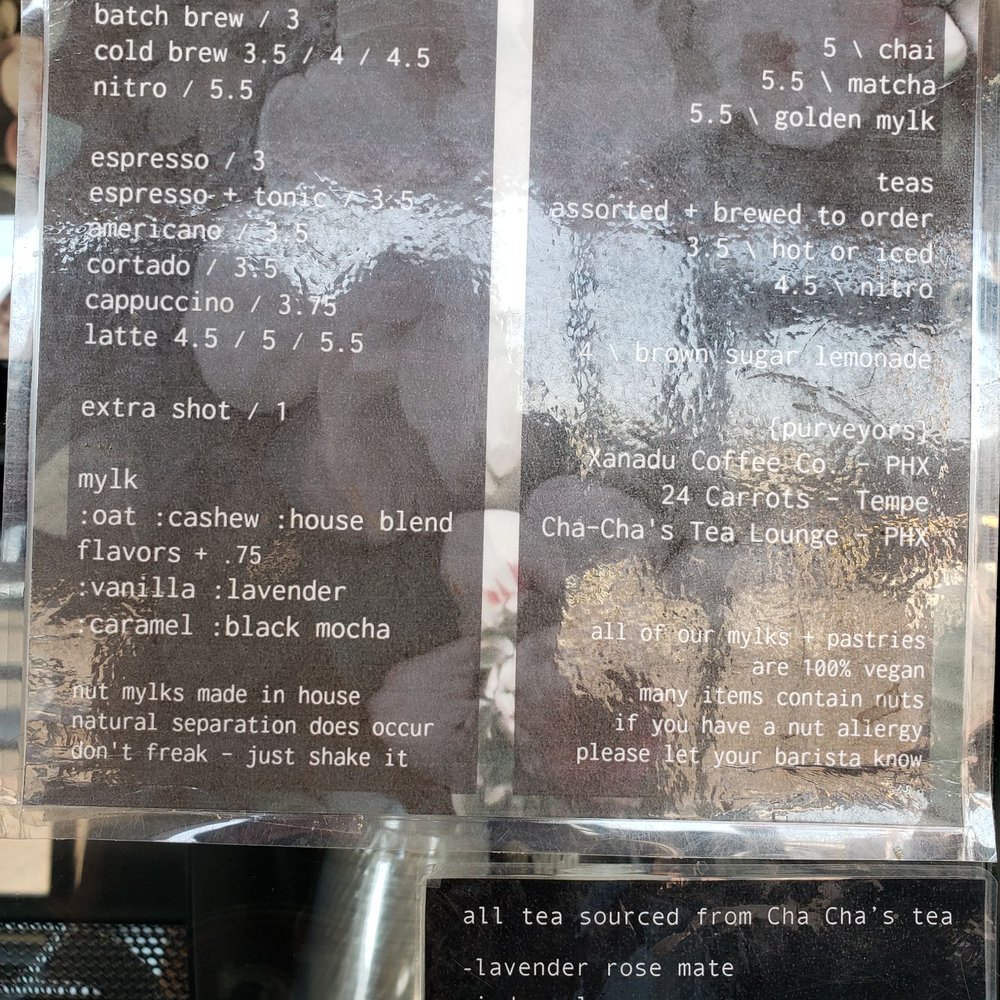 batch brew / 3
cold brew 3.5 / 4 / 4.5
nitro / 5.5
espresso / 3
espresso + tonic / 3.5
americano / 3.5
cortado / 3.5
cappuccino / 3.75
latte 4.5 / 5 / 5.5
extra shot / 1
mylk
:oat :cashew :house blend
flavors + .75
:vanilla :lavender
:caramel :black mocha
nut mylks made in house
natural separation does occur
don't freak - just shake it
5 \ chai
5.5 \ matcha
5.5 \ golden mylk
teas
assorted + brewed to order
3.5 \ hot or iced
4.5 \ nitro
4 \ brown sugar lemonade
{purveyors}
Xanadu Coffee Co. - PHX
24 Carrots - Tempe
Cha-Cha's Tea Lounge - PHX
all of our mylks + pastries
are 100% vegan
many items contain nuts
if you have a nut allergy
please let your barista know
all tea sourced from Cha Cha's tea
-lavender rose mate